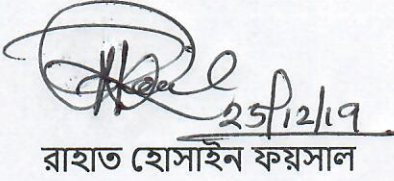 25/12/19
রাহাত হোসাইন ফয়সাল